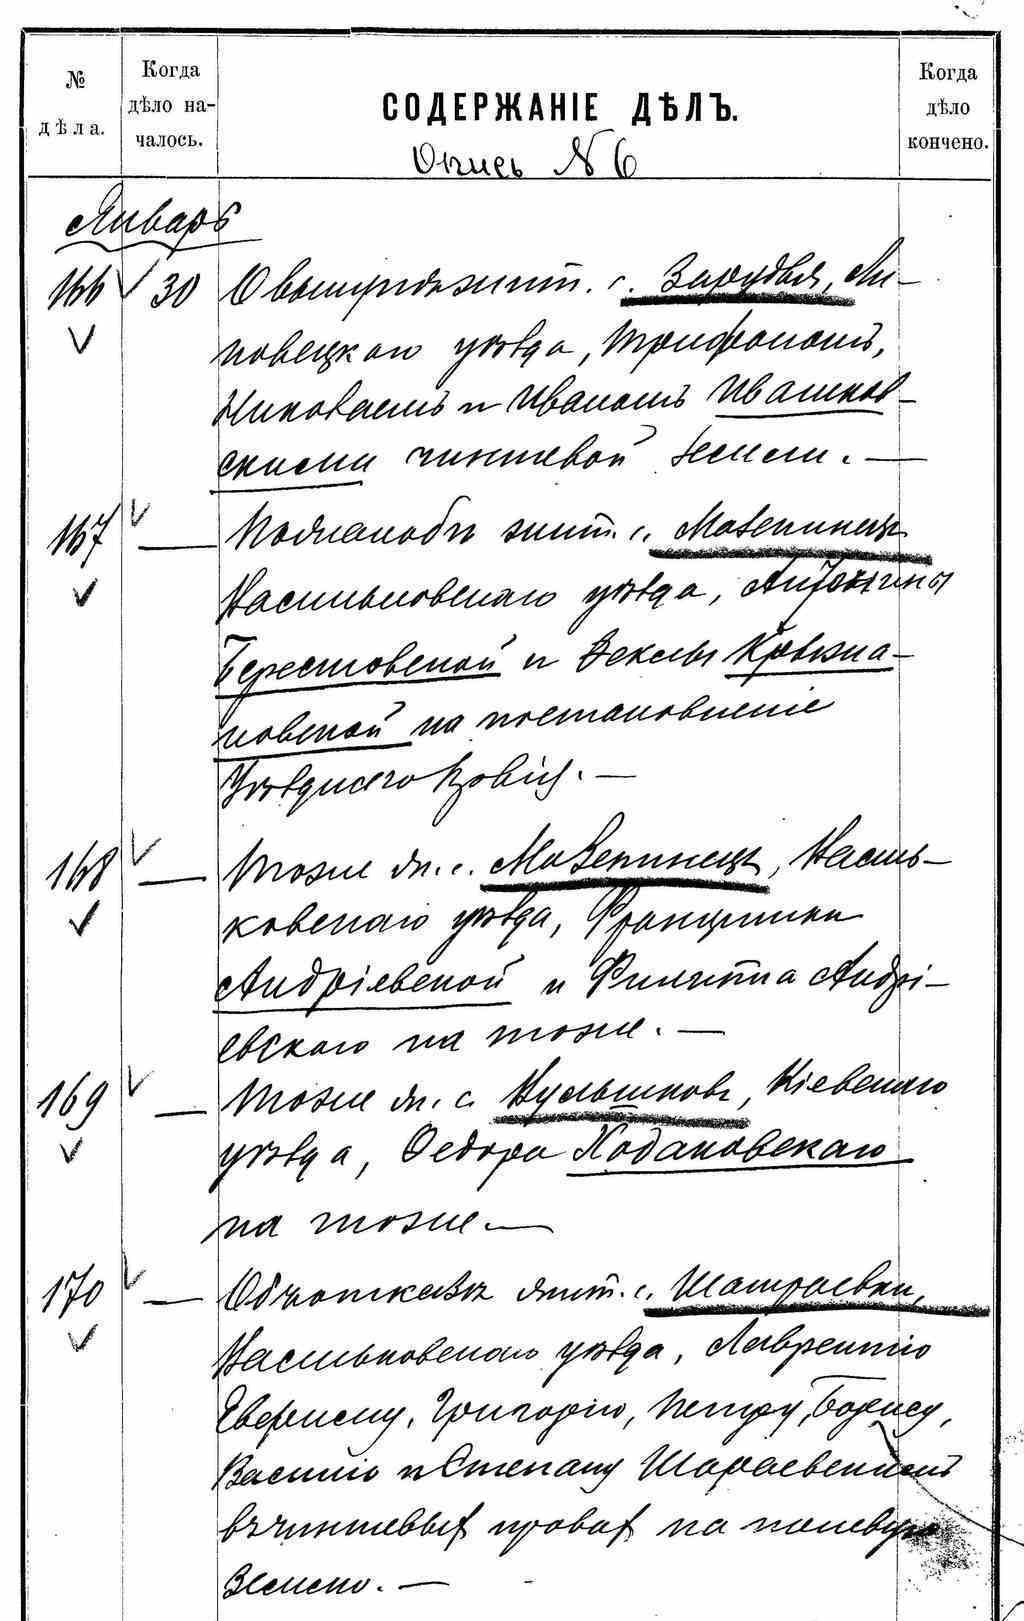 № дѣла.
Когда дѣло началось.
СОДЕРЖАНІЕ ДѢЛЪ.
Когда дѣло кончено.
Опись № 6
Январь
166 30 О выкупѣ жит. с. Зарудья, Ли-
повецкаго уѣзда, Трифономъ,
Николаемъ и Иваномъ Ивашков-
скими чиншевой земли. —
167 — По жалобѣ жит. с. Мазепинецъ
Васильковскаго уѣзда, Антонины
Берестовской и Феклы Крыжа-
новской на постановленіе
Уѣзднаго
168 — Тоже жит. с. Мазепинецъ, Василь-
ковскаго уѣзда, Францишки
Андріевской и Филиппа Андрі-
евскаго на тоже. —
169 — Тоже жит. с. Кулешиковъ, Кіевскаго
уѣзда, Федора Ходаковскаго
на тоже. —
170 — Объ отказѣ жит. с. Шамраевки,
Васильковскаго уѣзда, Лаврентію
Григорію, Петру, Борису,
Василію и Степану Шараевскимъ
въ чиншевыхъ правахъ на полевую
землю. —